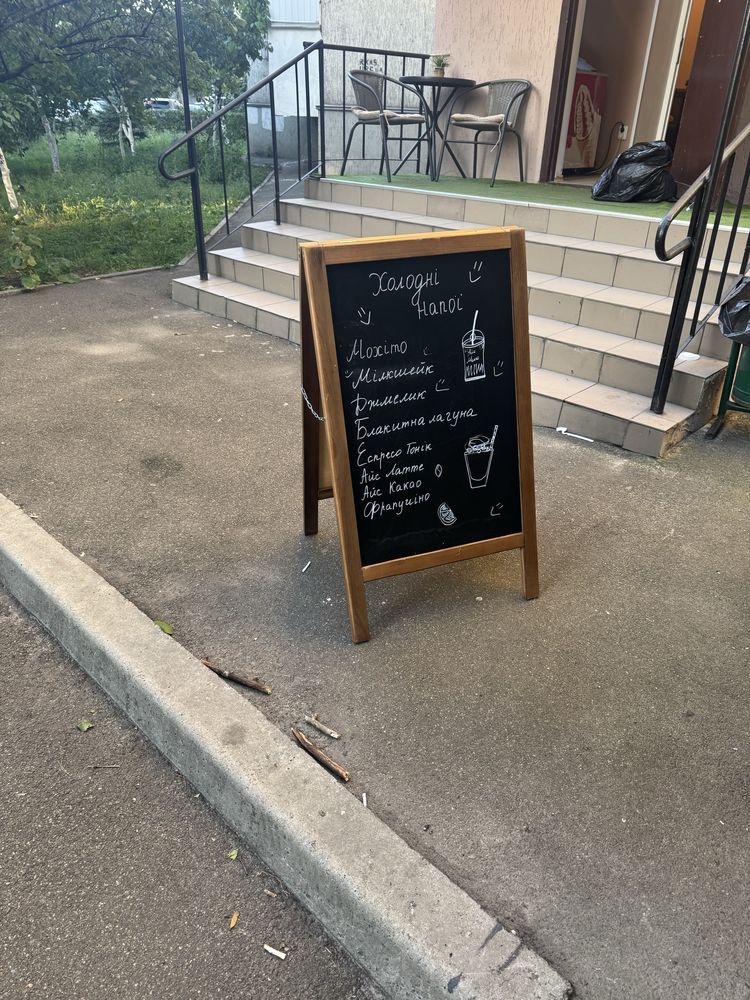 Холодні
Напої
Мохіто
Мілкшейк
Джмелик
Блакитна лагуна
Еспресо Тонік
Айс Латте
Айс Какао
Фрапучіно